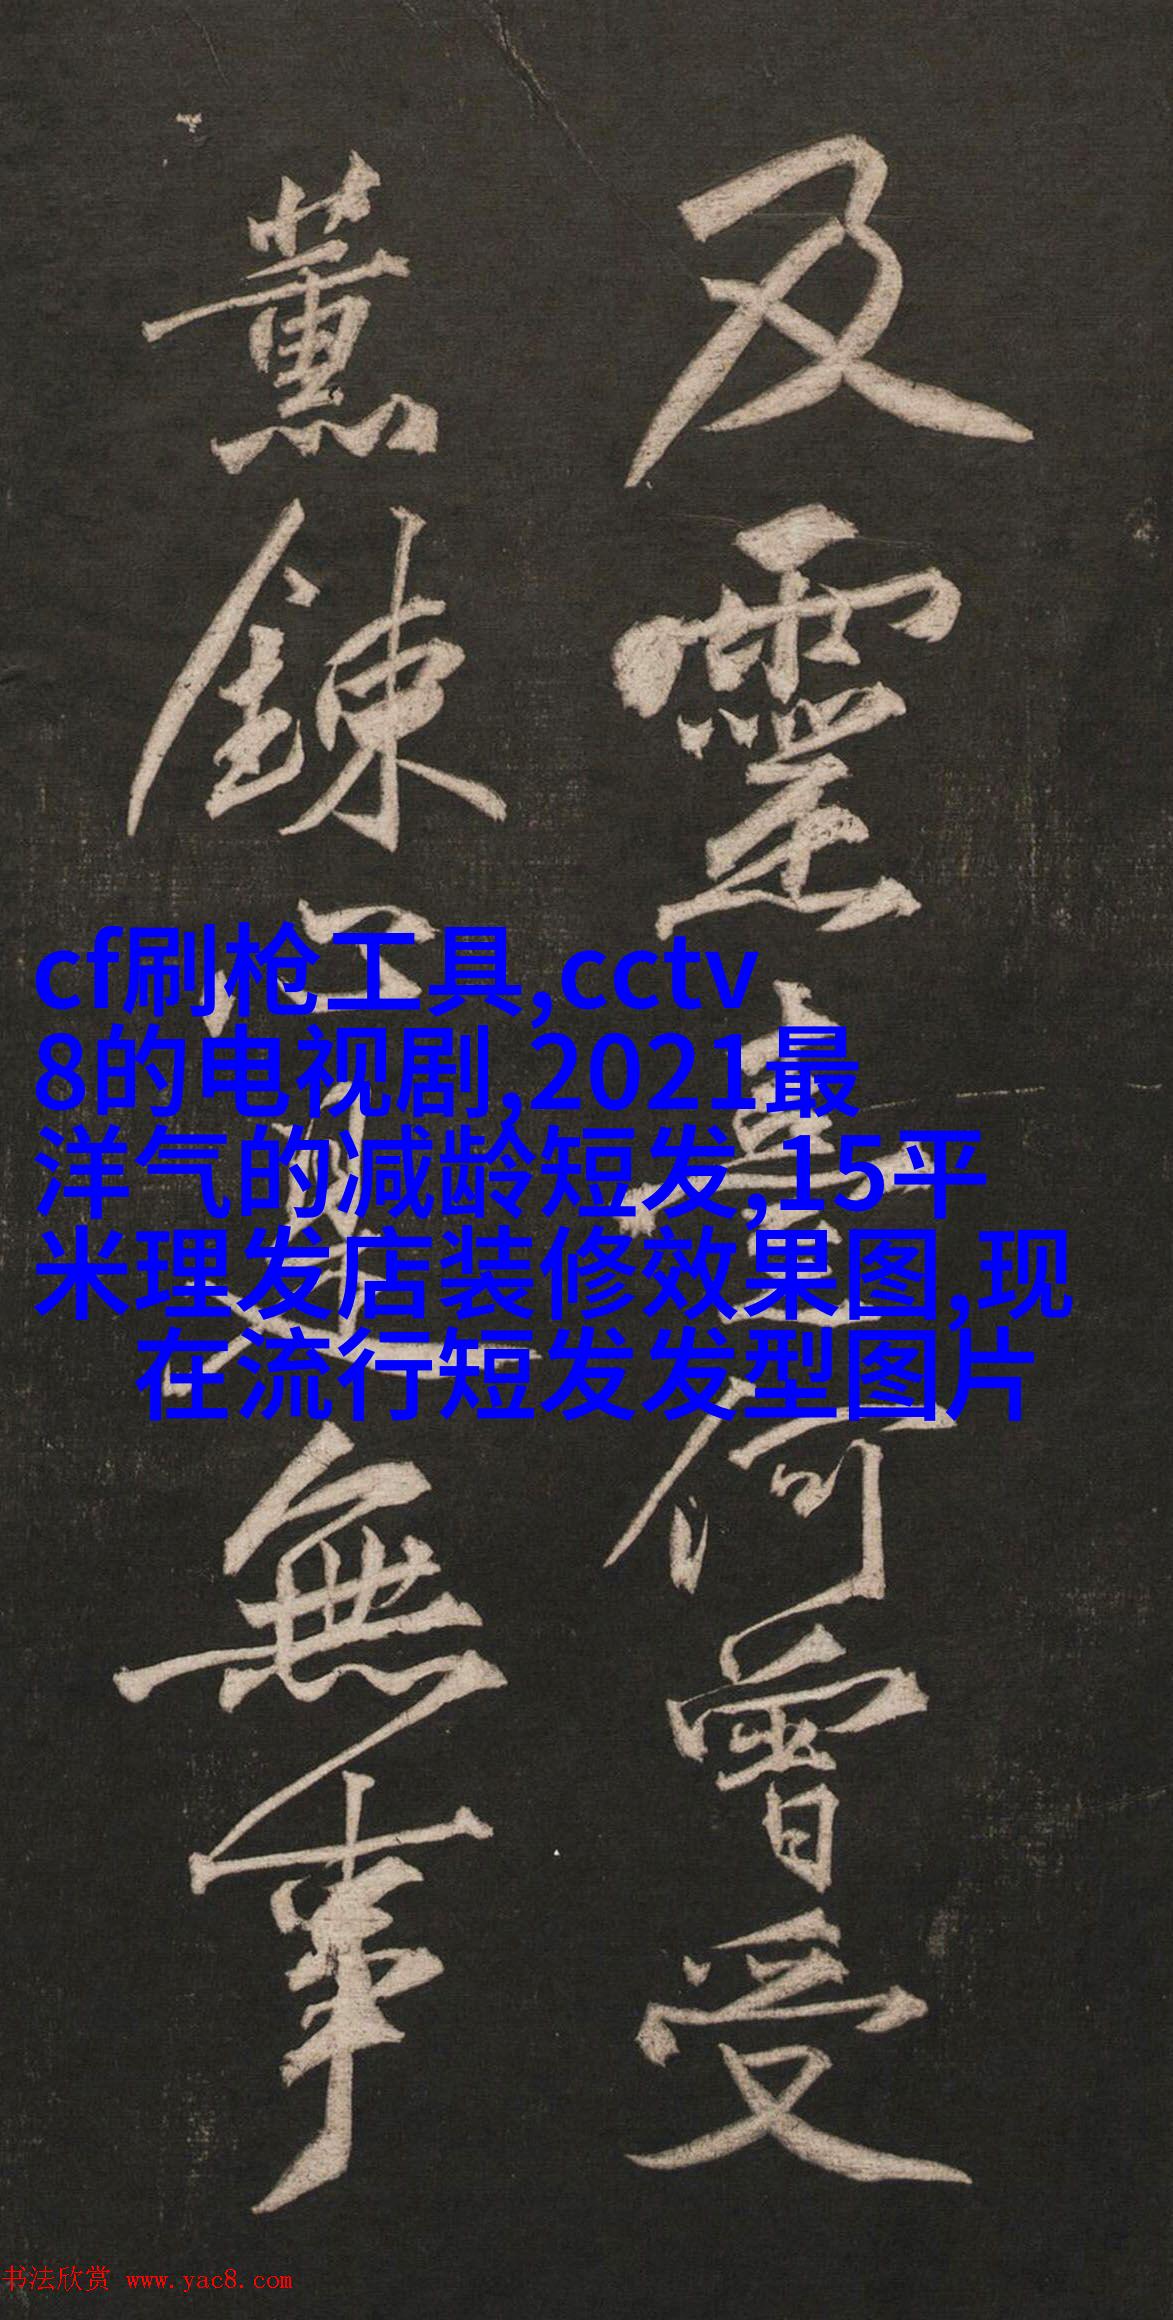 及靈臺何曾受
薰鍊是無事
cf刷枪工具,cctv
8的电视剧,2021最
洋气的减龄短发,15平
米理发店装修效果图,现
在流行短发发型图片
书法欣赏 www.yac8.com